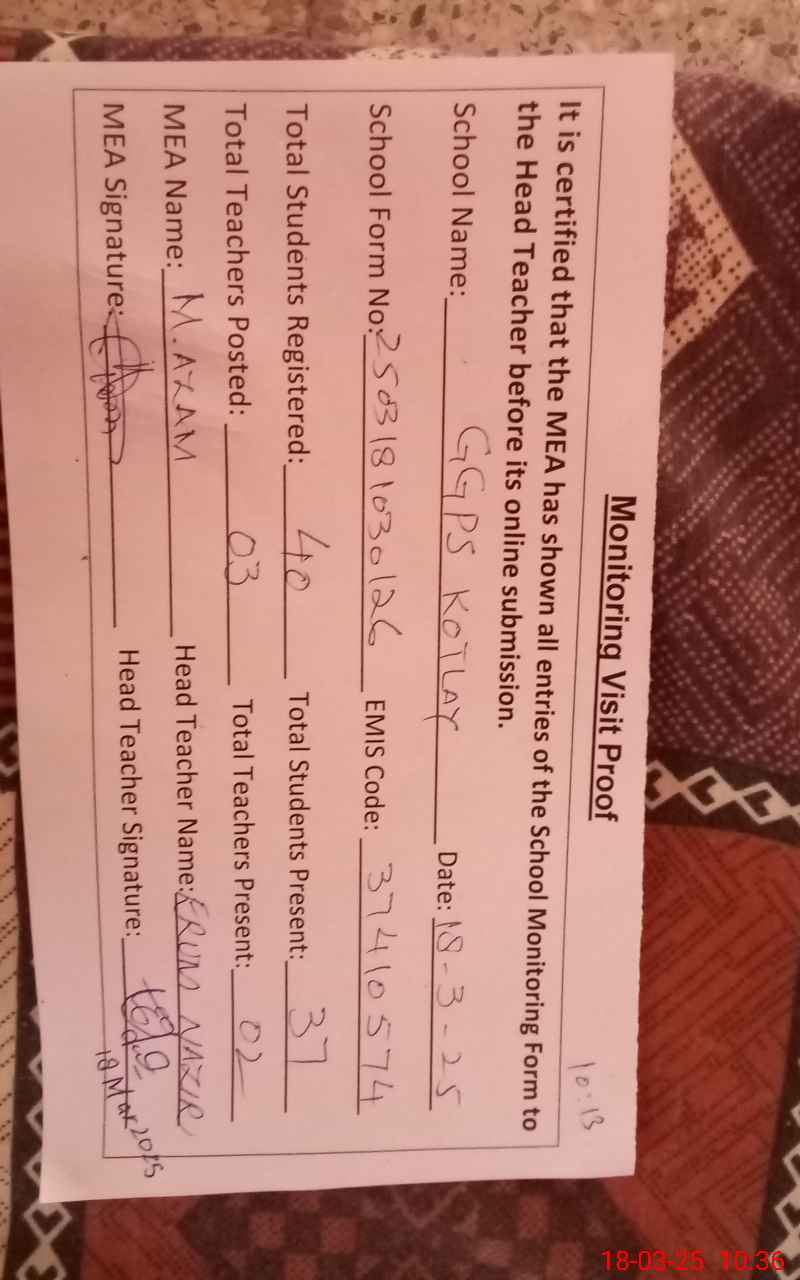 Monitoring Visit Proof
10:13
It is certified that the MEA has shown all entries of the School Monitoring Form to
the Head Teacher before its online submission.
School Name: GGPS KOTLAY Date: 18-3-25
School Form No: 2503181030126 EMIS Code: 37410574
Total Students Registered: 40 Total Students Present: 37
Total Teachers Posted: 03 Total Teachers Present: 02
MEA Name: M. AZAM Head Teacher Name: ERUM NAZIR
MEA Signature: Head Teacher Signature:
18 Mar 2025
18-03-25 10:36